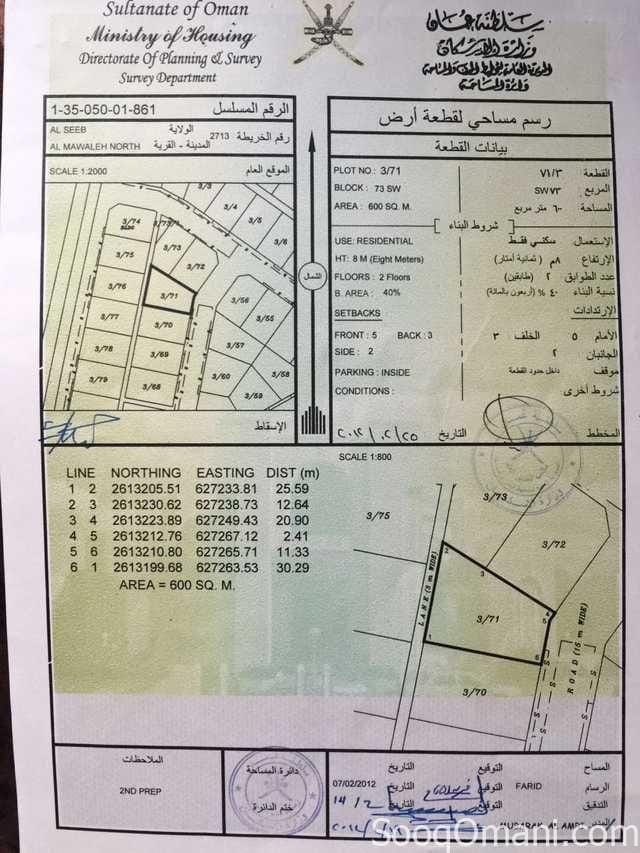 Sultanate of Oman
Ministry of Housing
Directorate of Planning & Survey
Survey Department
سلطنة عمان
وزارة الإسكان
المديرية العامة للتخطيط والمساحة
دائرة المساحة
1-35-050-01-861 الرقم المسلسل
AL SEEB الولاية
رقم الخريطة 2713
AL MAWALEH NORTH المدينة - القرية
SCALE 1:2000 الموقع العام
3/3
3/4
3/5
3/6
3/74
3/73
3/72
3/75
3/76
3/71
3/77
3/70
3/78
3/69
3/79
3/68
3/56
3/55
3/57
3/58
3/60
3/59
الإسقاط
الشمال
رسم مساحي لقطعة أرض
بيانات القطعة
PLOT NO : 3/71 ٧١/٣ القطعة
BLOCK : 73 SW SW ٧٣ المربع
AREA : 600 SQ. M. ٦٠٠ متر مربع المساحة
شروط البناء
USE: RESIDENTIAL سكني فقط الإستعمال
HT: 8 M (Eight Meters) ٨م (ثمانية أمتار) الإرتفاع
FLOORS : 2 Floors ٢ (طابقين) عدد الطوابق
B. AREA : 40% ٤٠ % (أربعون بالمائة) نسبة البناء
SETBACKS الإرتدادات
FRONT : 5 BACK : 3 ٣ الخلف ٥ الأمام
SIDE : 2 ٢ الجانبان
PARKING : INSIDE داخل حدود القطعة موقف
CONDITIONS : شروط أخرى
التاريخ المخطط
SCALE 1:800
LINE NORTHING EASTING DIST (m)
1 2 2613205.51 627233.81 25.59
2 3 2613230.62 627238.73 12.64
3 4 2613223.89 627249.43 20.90
4 5 2613212.76 627267.12 2.41
5 6 2613210.80 627265.71 11.33
6 1 2613199.68 627263.53 30.29
AREA = 600 SQ. M.
3/73
3/75
3/72
3/71
3/70
LANE (5 m WIDE)
ROAD (15 m WIDE)
1
2
3
4
5
6
الملاحظات
2ND PREP
دائرة المساحة
ختم الدائرة
التاريخ التوقيع المساح
07/02/2012 التاريخ التوقيع FARID الرسام
14/2 التاريخ التوقيع التدقيق
SooqOmani.com